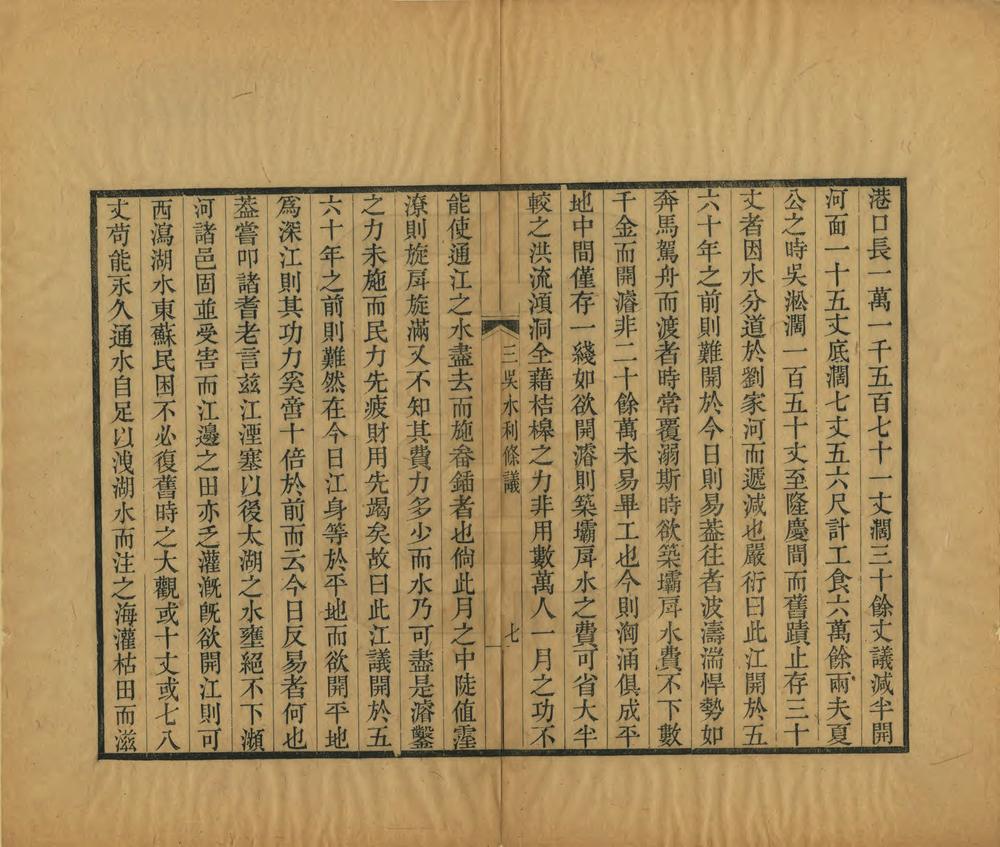 港口長一萬一千五百七十一丈濶三十餘丈議減半開
河面一十五丈底濶七丈五六尺計工食六萬餘兩夫夏
公之時吳淞濶一百五十丈至隆慶間而舊蹟止存三十
丈者因水分道於劉家河而遞減也嚴衍曰此江開於五
六十年之前則難開於今日則易葢往者波濤湍悍勢如
奔馬駕舟而渡者時常覆溺斯時欲築壩戽水費不下數
千金而開濬非二十餘萬未易畢工也今則洶涌俱成平
地中間僅存一綫如欲開濬則築壩戽水之費可省大半
較之洪流澒洞全藉桔槹之力非用數萬人一月之功不
三吳水利條議
七
能使通江之水盡去而施畚鍤者也倘此月之中陡值霪
潦則旋戽旋滿又不知其費力多少而水乃可盡是濬鑿
之力未施而民力先疲財用先竭矣故曰此江議開於五
六十年之前則難然在今日江身等於平地而欲開平地
爲深江則其功力奚啻十倍於前而云今日反易者何也
葢嘗叩諸耆老言玆江湮塞以後太湖之水壅絕不下瀕
河諸邑固並受害而江邊之田亦乏灌漑旣欲開江則可
西瀉湖水東蘇民困不必復舊時之大觀或十丈或七八
丈苟能永久通水自足以洩湖水而注之海灌枯田而滋